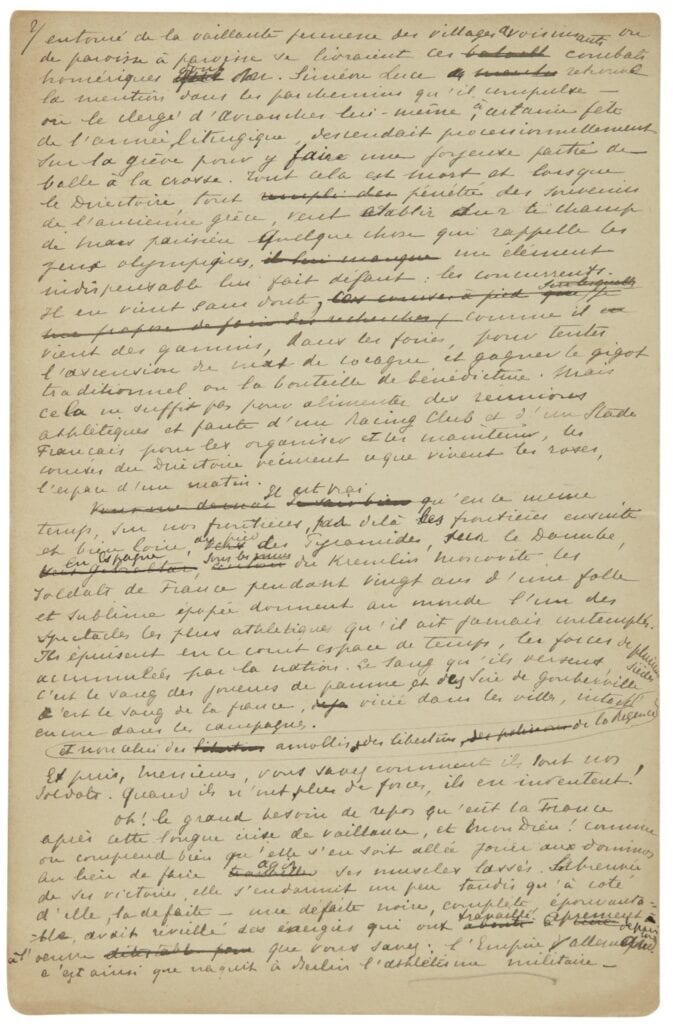 7/ entouré de la vaillante jeunesse des villages avoisinants ou
de paroisse à paroisse se livraient ces combats
homériques dont Mr. Siméon Luce a retrouvé
la mention dans les parchemins qu'il compulse —
où le clergé d'Avranches lui-même, à certaine fête
de l'année liturgique, descendait processionnellement
sur la grève pour y faire une joyeuse partie de
balle à la crosse. Tout cela est mort et lorsque
le Directoire tout rempli des pénétré des souvenirs
de l'ancienne grèce, veut établir sur le champ
de mars parisien quelque chose qui rappelle les
jeux olympiques, il lui manque un élément
indispensable lui fait défaut : les concurrents.
Il en vient sans doute, les courses à pied sur lesquelles je
me propose de faire des recherches, comme il
vient des gamins, dans les foires, pour tenter
l'ascension du mat de cocagne et gagner le gigot
traditionnel ou la bouteille de bénédictine. Mais
cela ne suffit pas pour alimenter des réunions
athlétiques et faute d'un Racing Club et d'un Stade
Français pour les organiser et les maintenir, les
courses du Directoire vécurent ce que vivent les roses,
l'espace d'un matin.
Il est vrai qu'en ce même
temps, sur nos frontières, par delà les frontières ensuite
et bien loin, au pied des Pyramides, sur le Danube,
en Espagne, sous les murs du Kremlin moscovite les
soldats de France pendant vingt ans d'une folle
et sublime épopée donnent au monde l'un des
spectacles les plus athlétiques qu'il ait jamais contemplés.
Ils épuisent en ce court espace de temps, les forces de plusieurs siècles
accumulées par la nation. Le sang qu'ils versent,
c'est le sang des joueurs de paume et des Sire de Gouberville
c'est le sang de la france, déjà vicié dans les villes, intact
encore dans les campagnes.
et non celui des amollis, des libertins, des polissons de la Régence
Et puis, Messieurs, vous savez comment ils sont nos
soldats. Quand ils n'ont plus de forces, ils en inventent !
Oh ! le grand besoin de repos qu'eut la France
après cette longue crise de vaillance, et mon Dieu ! comme
on comprend bien qu'elle s'en soit allée jouer aux dominos
au lieu de faire agir ses muscles lassés. Enivrée
de ses victoires elle s'endormit un peu tandis qu'à côté
d'elle, la défaite — une défaite noire, complète, épouvanta-
ble, avait réveillé des énergies qui ont travaillé depuis
à l'œuvre que vous savez : l'Empire allemand.
c'est ainsi que naquit à Berlin l'athlétisme militaire —